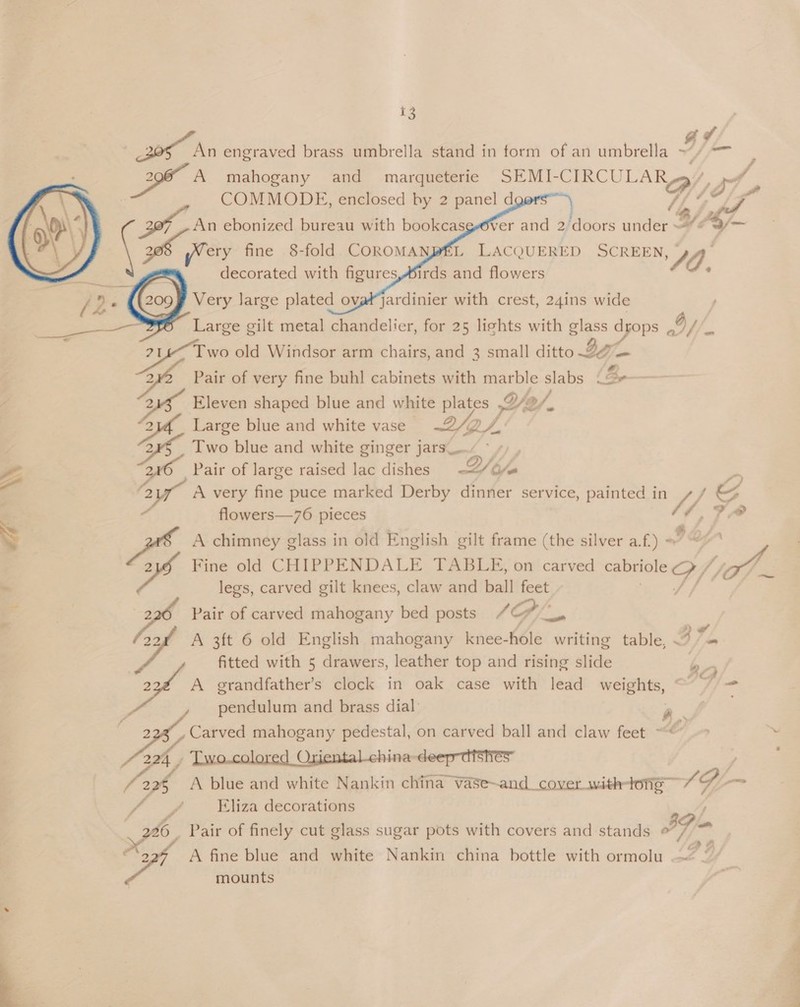 13
205 An engraved brass umbrella stand in form of an umbrella
206 A mahogany and marqueterie SEMI-CIRCULAR
COMMODE, enclosed by 2 panel doors
207 An ebonized bureau with bookcase over and 2 doors under
208 Very fine 8-fold COROMANDEL LACQUERED SCREEN,
decorated with figures, birds and flowers
209 Very large plated oval jardinier with crest, 24ins wide
210 Large gilt metal chandelier, for 25 lights with glass drops
211 Two old Windsor arm chairs, and 3 small ditto
212 Pair of very fine buhl cabinets with marble slabs
213 Eleven shaped blue and white plates
214 Large blue and white vase
215 Two blue and white ginger jars
216 Pair of large raised lac dishes
217 A very fine puce marked Derby dinner service, painted in
flowers—76 pieces
218 A chimney glass in old English gilt frame (the silver a.f.)
219 Fine old CHIPPENDALE TABLE, on carved cabriole
legs, carved gilt knees, claw and ball feet
220 Pair of carved mahogany bed posts
221 A 3ft 6 old English mahogany knee-hole writing table,
fitted with 5 drawers, leather top and rising slide
222 A grandfather's clock in oak case with lead weights,
pendulum and brass dial
223 Carved mahogany pedestal, on carved ball and claw feet
224 Two colored Oriental china deep dishes
225 A blue and white Nankin china vase and cover with long
Eliza decorations
226 Pair of finely cut glass sugar pots with covers and stands
227 A fine blue and white Nankin china bottle with ormolu
mounts